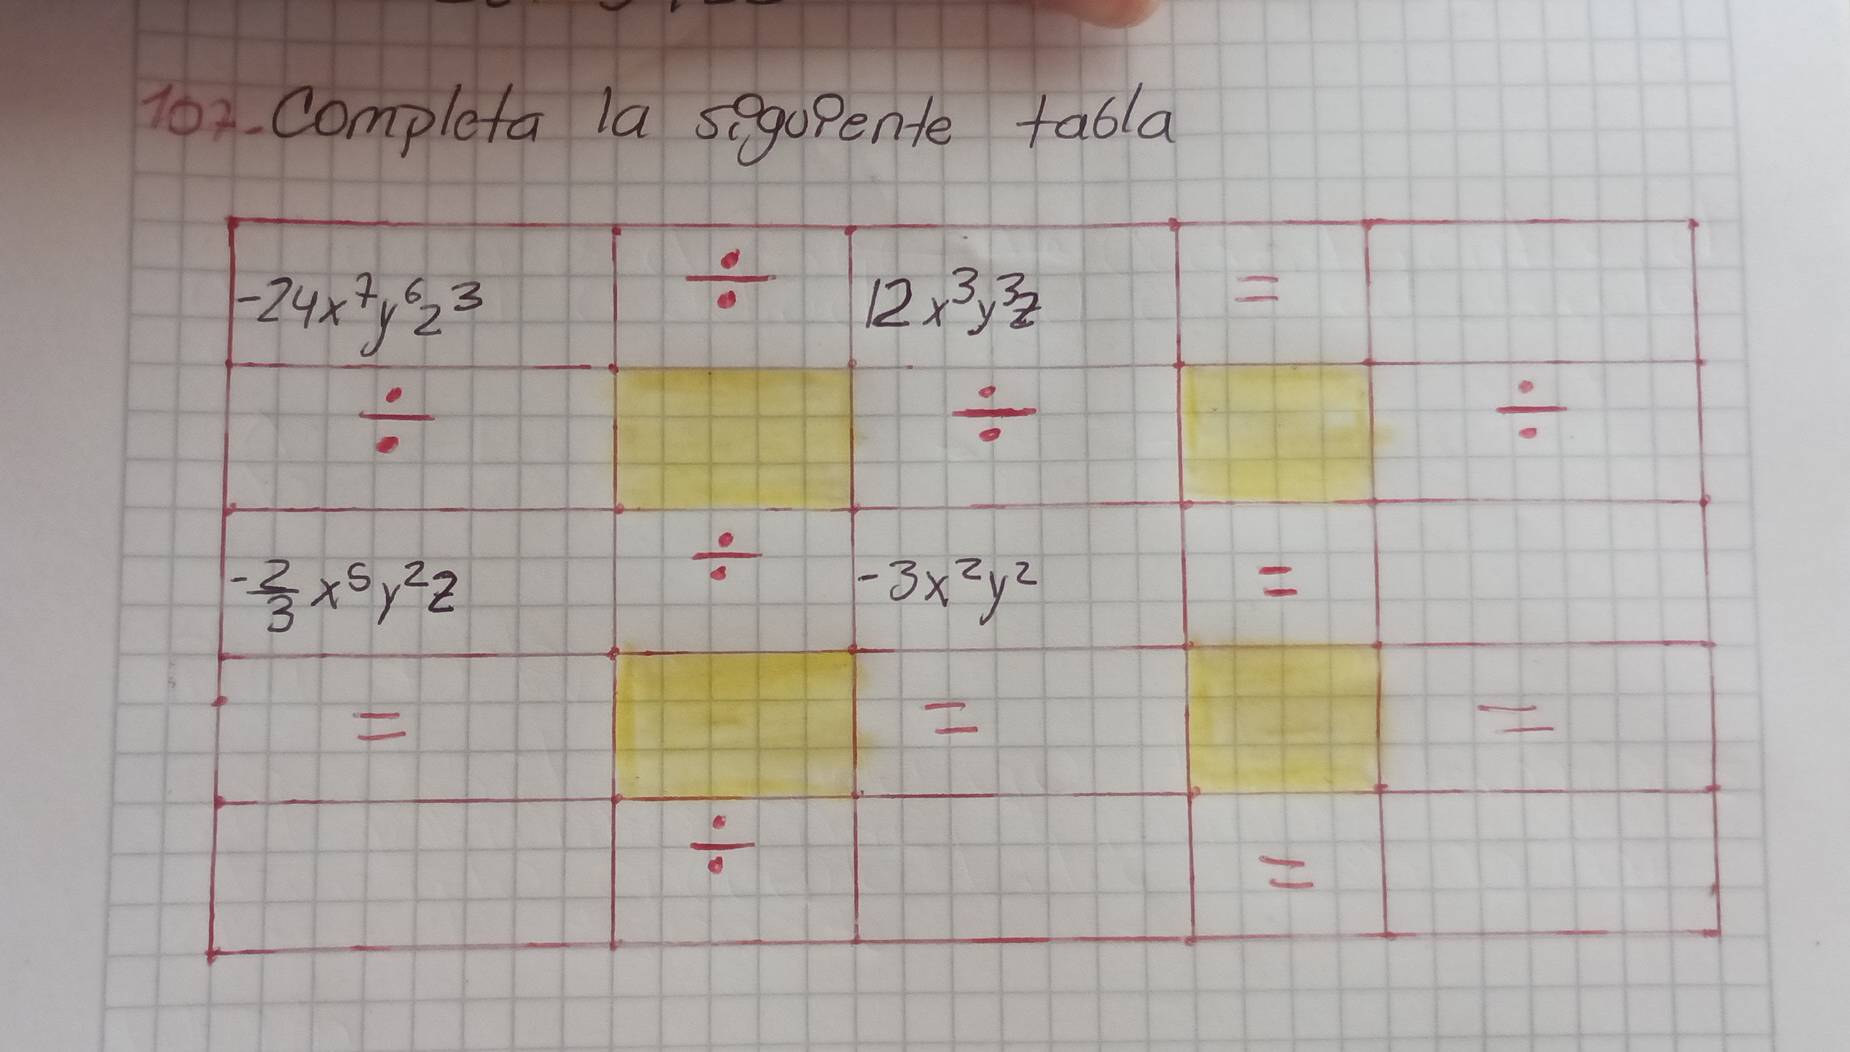 107.- Completa la siguiente tabla
-24x⁷y⁶z³ ÷ 12x³y³z =
÷ ÷ ÷
-2/3 x⁵y²z ÷ -3x²y² =
= = =
÷ =